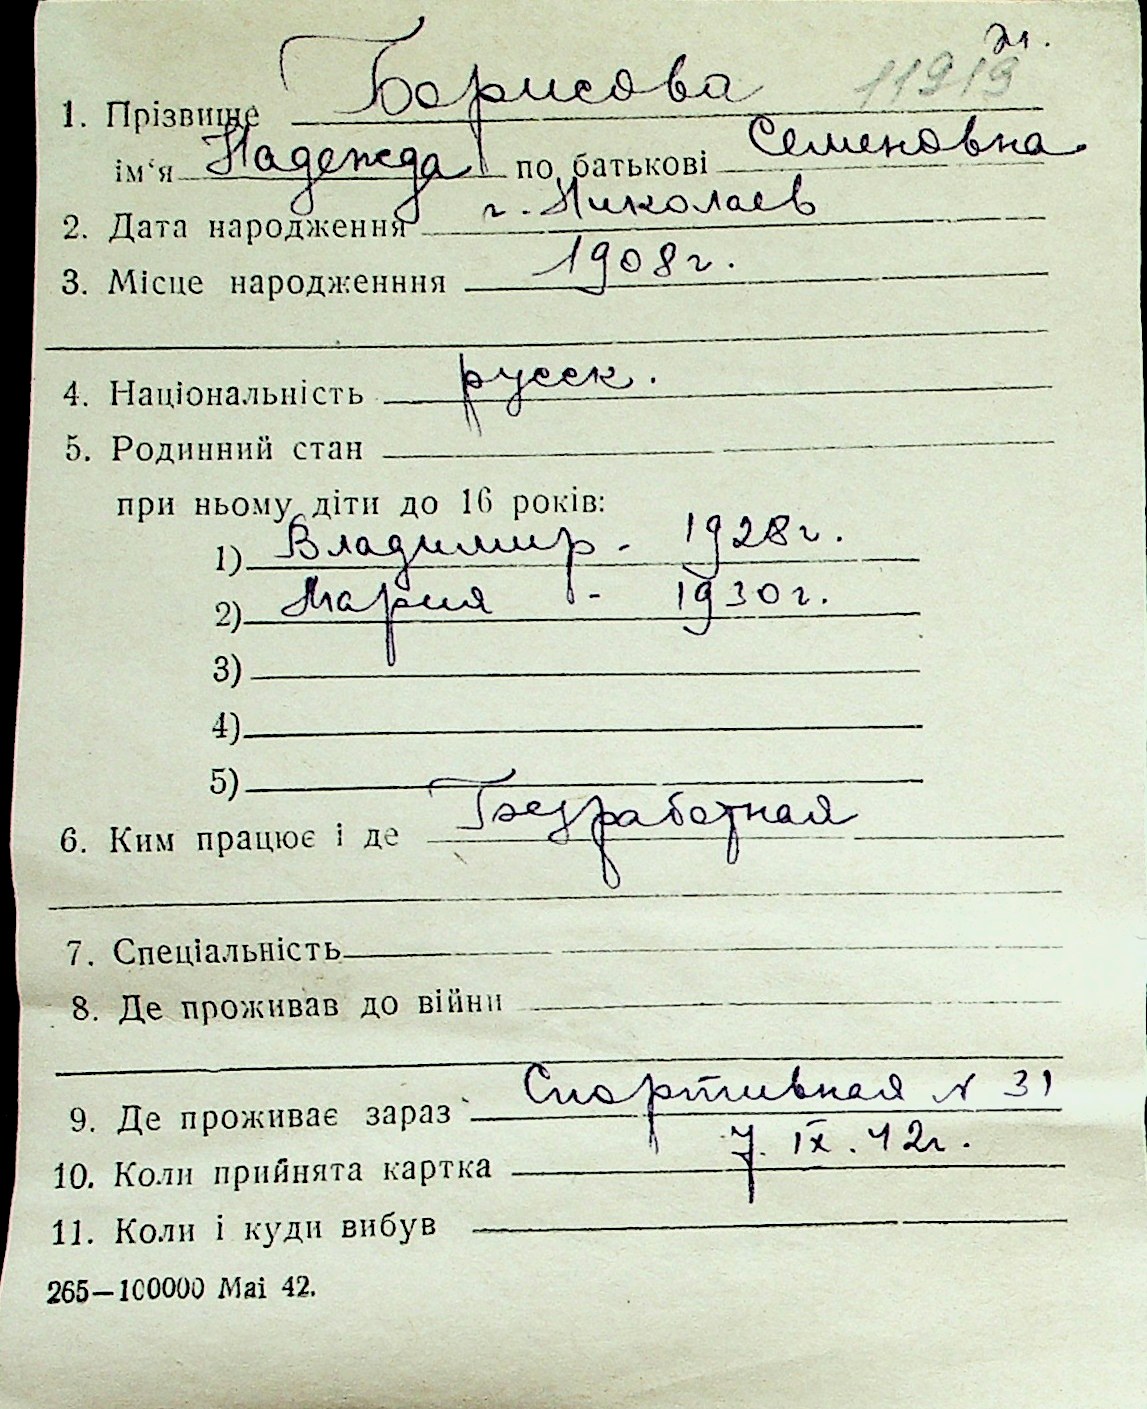 21.
11919
1. Прізвище Борисова
ім‘я Надежда по батькові Семеновна
2. Дата народження г. Николаев
3. Місце народженння 1908 г.
4. Національність русск.
5. Родинний стан
при ньому діти до 16 років:
1) Владимир - 1928 г.
2) Мария - 1930 г.
3)
4)
5)
6. Ким працює і де Безработная
7. Спеціальність
8. Де проживав до війни
9. Де проживає зараз Спортивная N 31
10. Коли прийнята картка 7. IX. 42 г.
11. Коли і куди вибув
265—100000 Mai 42.